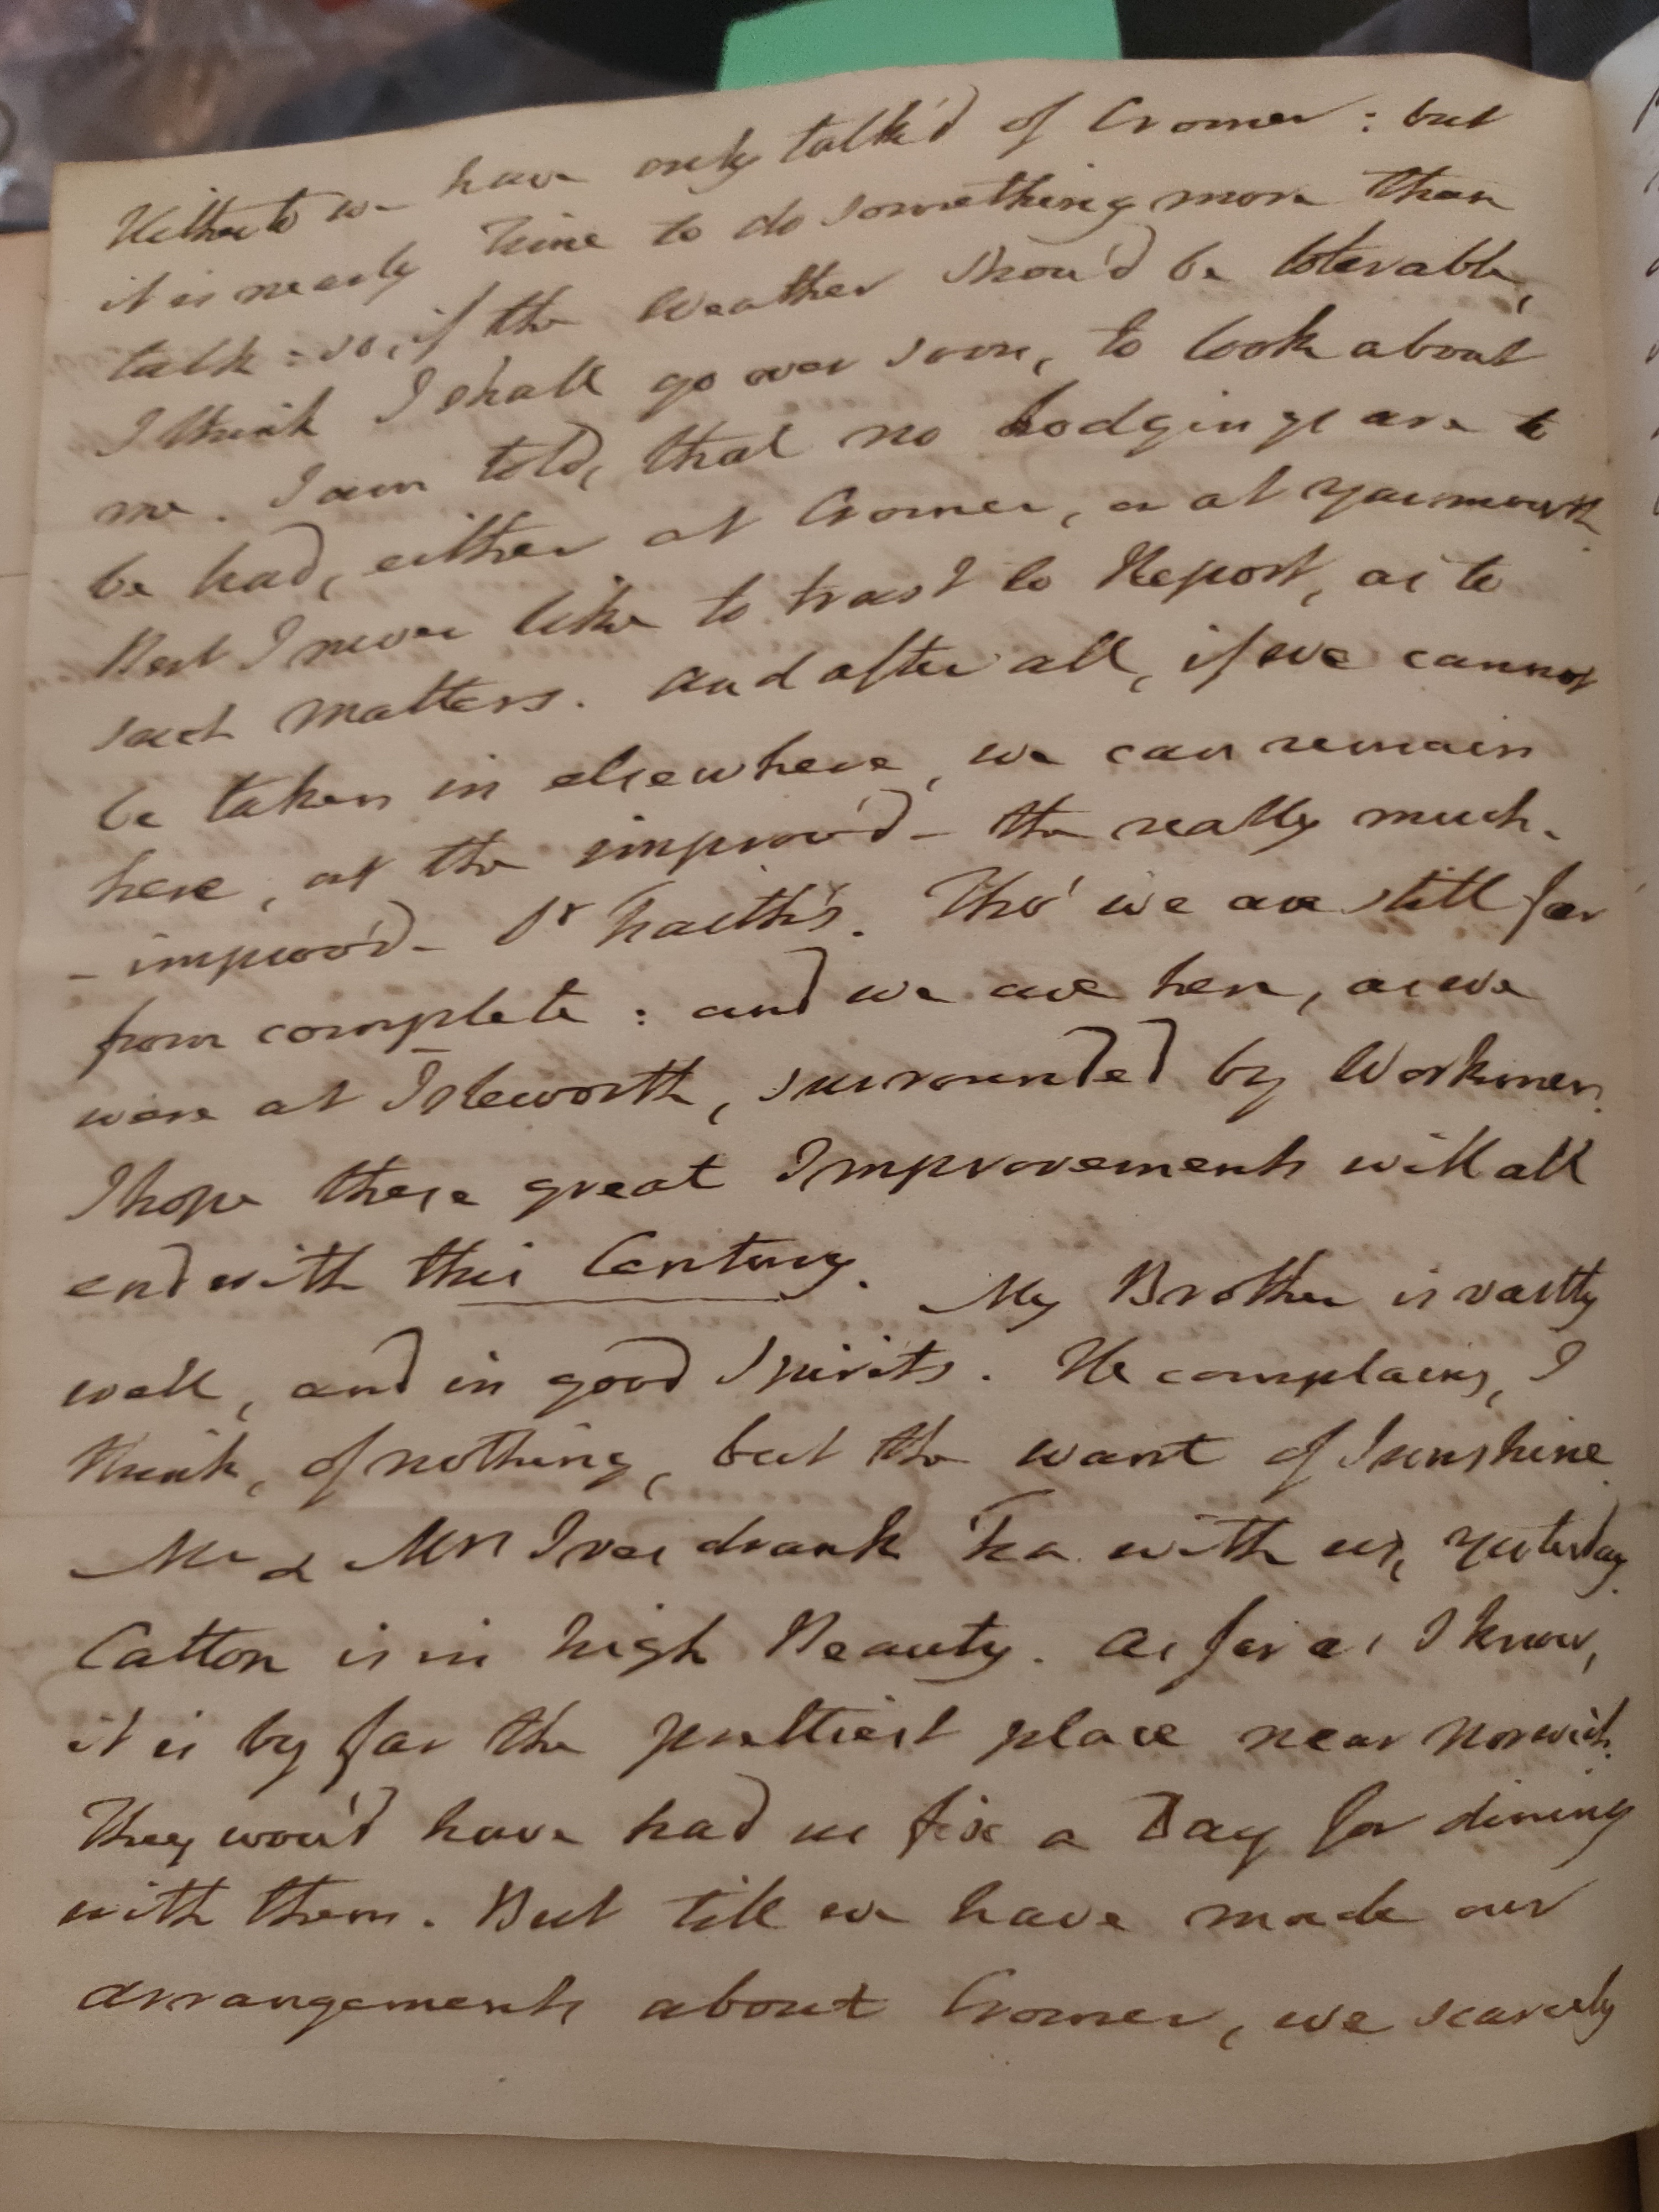 Hitherto we have only talk'd of Cromer: but
it is nearly time to do something more than
talk: so, if the Weather shou'd be tolerable,
I think I shall go over soon, to look about
me. I am told, that no Lodgings are to
be had, either at Cromer, or at Yarmouth.
But I never like to trust to Report, as to
such matters. And after all, if we cannot
be taken in elsewhere, we can remain
here, at the improv'd - the really much-
- improv'd - St Faith's. Tho' we are still far
from complete: and we are here, as we
were at Isleworth, surrounded by Workmen.
I hope these great Improvements will all
end with this Century. My Brother is vastly
well, and in good Spirits. He complains, I
think, of nothing, but the want of Sunshine.
Mr & Mrs Ives drank Tea with us, yesterday.
Catton is in high Beauty. As far as I know,
it is by far the prettiest place near Norwich.
They wou'd have had us fix a Day for dining
with them. But till we have made our
arrangements about Cromer, we scarcely